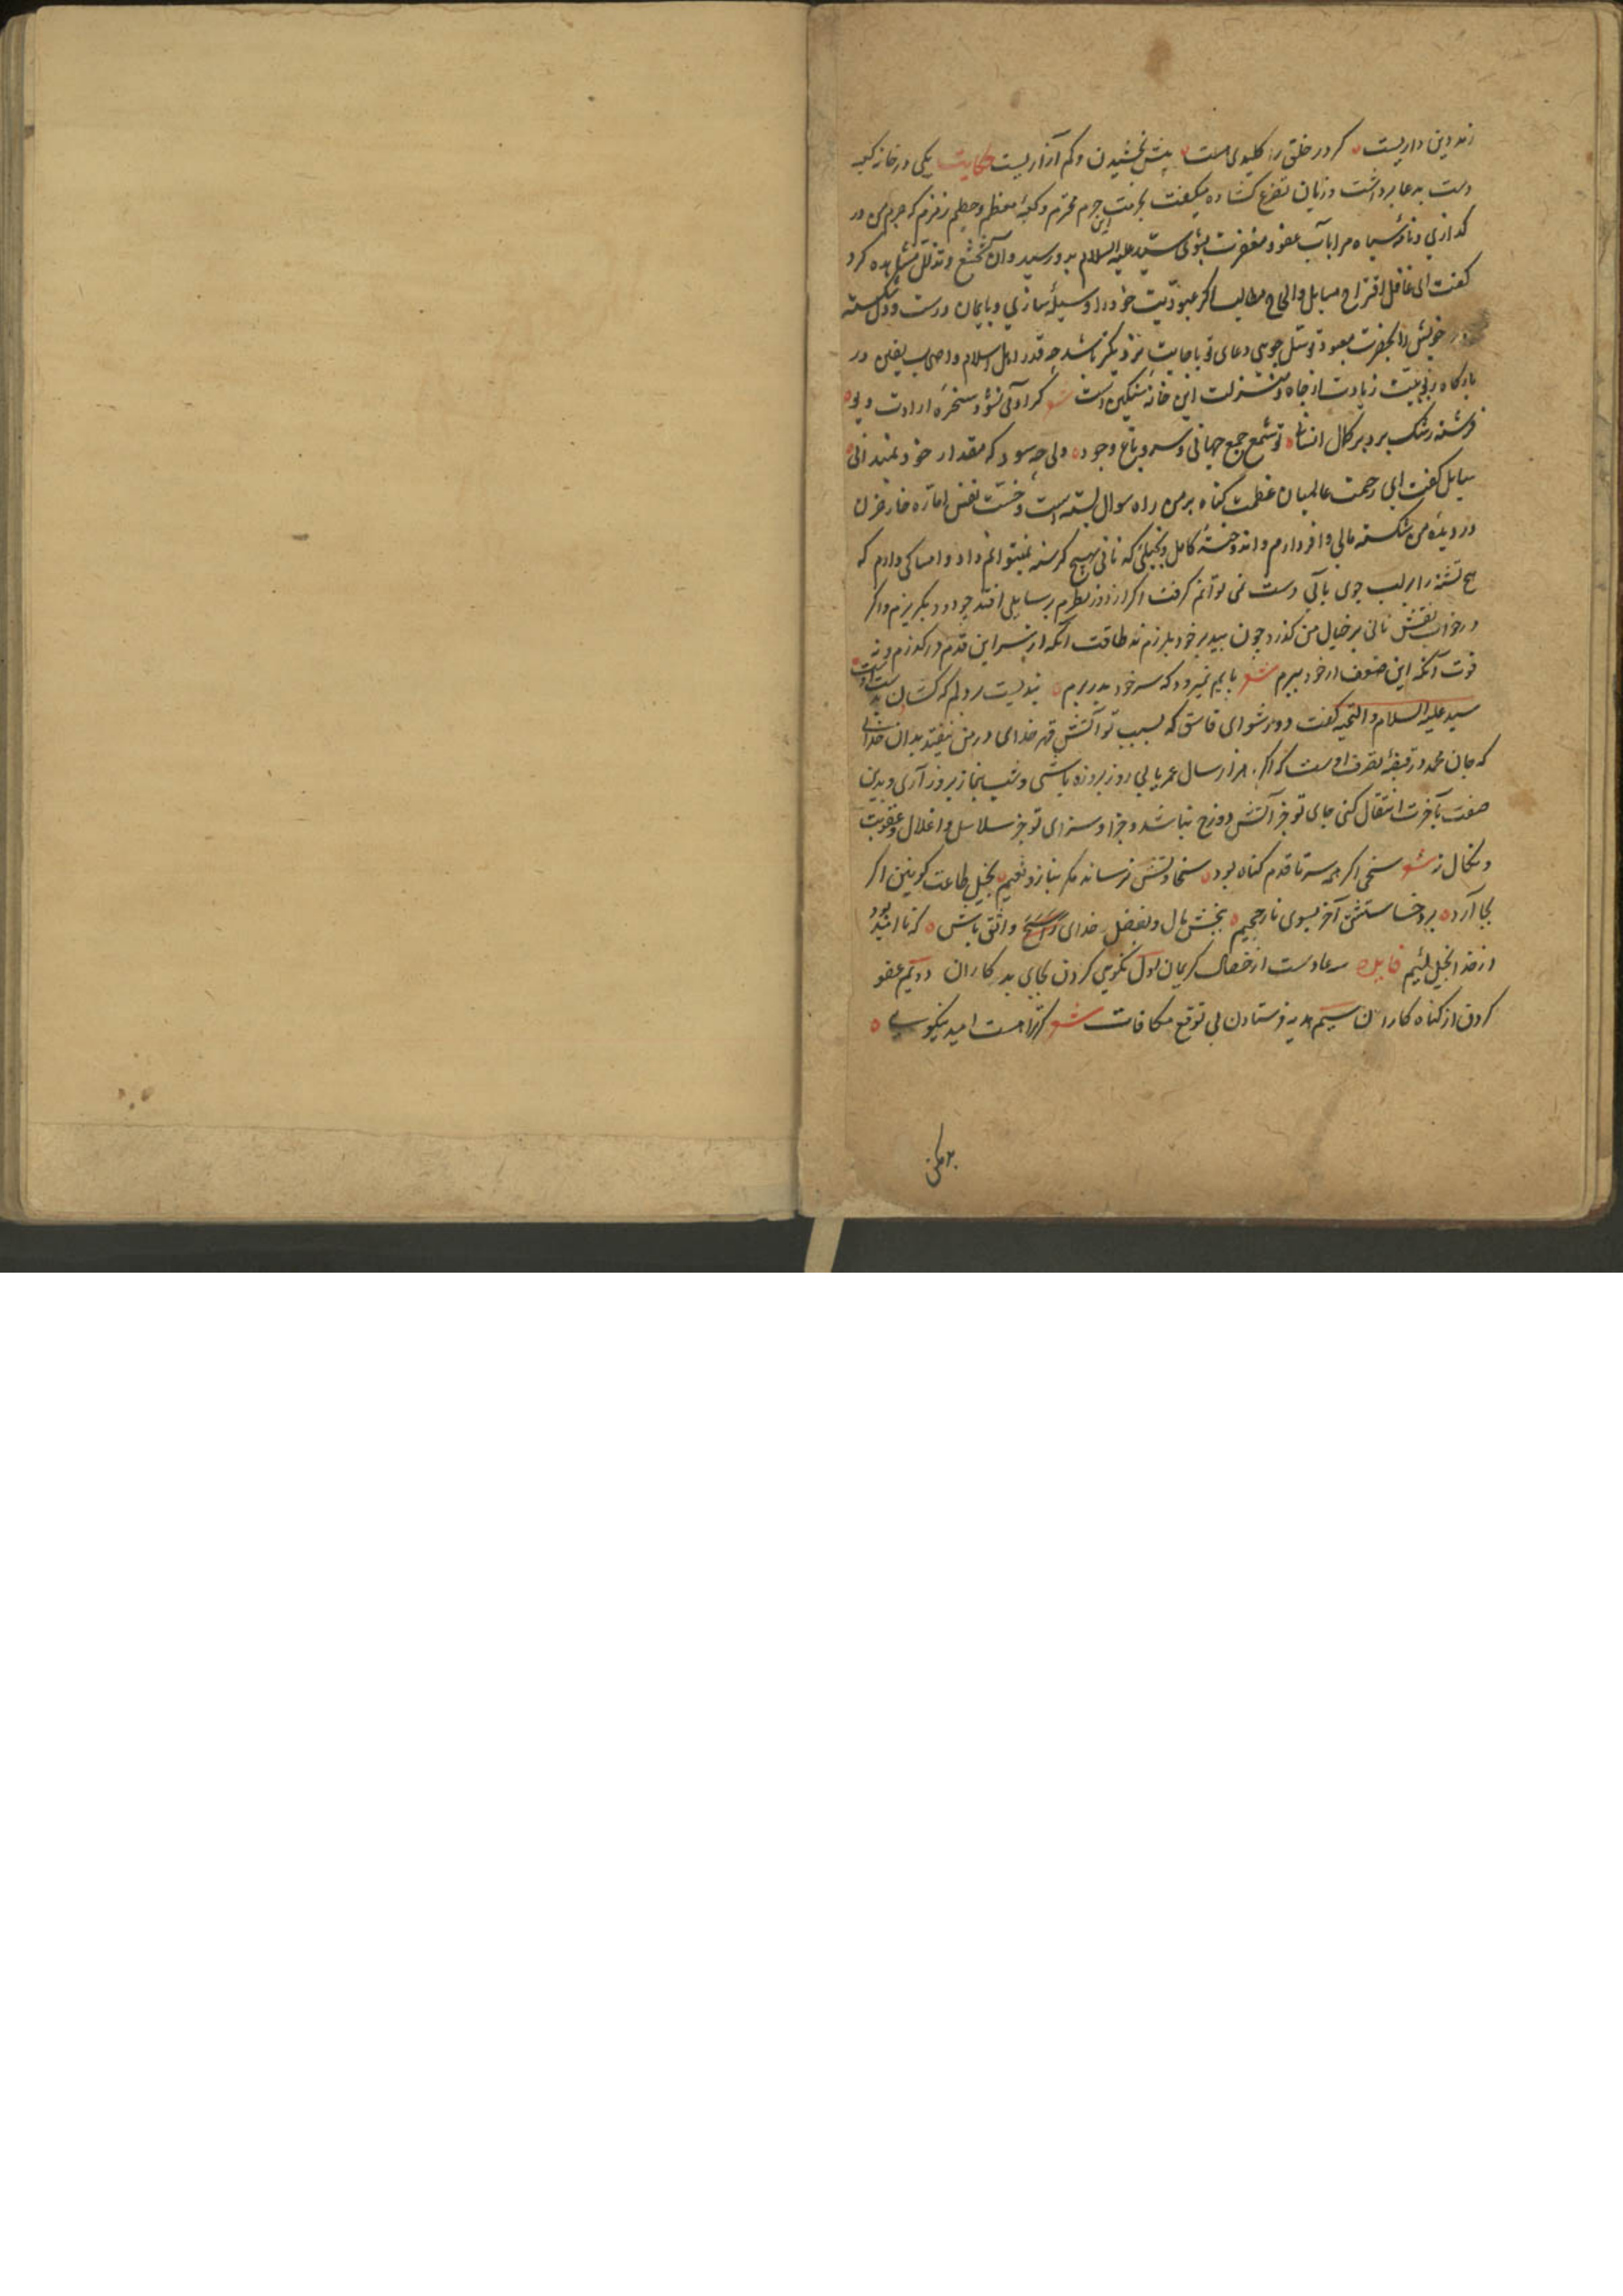 زند دین داریست ه کر در خلق را کلیدی هست ه بیش بخشیدن و کم آزاریست حکایت یکی در خانه کعبه
دست بدعا برداشت و زبان تضرع کشاده میکفت بحرمت این حرم محترم و کعبهٔ معظم و حطیم و زمزم که جرم من در
کذاری و نامهٔ سیاه مرا بآب عفو و مغفرت بشوئی سید علیه السلام بدو رسید و آن تخشع و تذلل مشاهده کرد
کفت ای غافل اقتراح مسایل و الحاح مطالب اکر عبودیت خود را وسیله سازی و بایمان درست و دل شکسته
خویش را بحضرت معبود توسل جویی دعای تو باجابت نزدیکتر باشد چه قدر اهل اسلام و اصحاب یقین در
بارکاه ربوبیت زیادت از جاه و منزلت این خانهٔ سنکین است شعر کر آدمی نشود سخرهٔ ارادت دیو ه
فرشته رشک برد بر کمال انسانی ه تو شمع جمع جهانی و سرو باغ وجود ه ولی چه سود که مقدار خود نمیدانی ه
سایل کفت ای رحمت عالمیان عظمت کناه بر من راه سوال بسته است و خست نفس اماره خار حزن
در دیدهٔ من شکسته مالی وافر دارم و اندوختهٔ کامل و بخیلی که نانی بهیچ کرسنه نمیتوانم داد و امساکی دارم که
هیچ تشنه را بر لب جوی بآبی دست نمی توانم کرفت اکر از دور نظرم بر سایلی افتد چو دود بکریزم و اکر
در خواب نقش نانی بر خیال من کذرد چون بید بر خود بلرزم نه طاقت آنکه از سر این قدم در کذرم و نه
قوت آنکه این ضعف از خود ببرم شعر پایم نمیرود که سر خود بدر برم ه بندیست بر دلم که کشان بدست اوست ه
سید علیه السلام و التحیه کفت دور شو ای فاسق که بسبب تو آتش قهر خدای در من نیفتد بدان خدائی
که جان محمد در قبضهٔ تصرف اوست که اکر هزار سال عمر یابی روز بروزه باشی و شب بنماز بروز آری و بدین
صفت بآخرت انتقال کنی جای تو جز آتش دوزخ نباشد و جزا و سزای تو جز سلاسل و اغلال و عقوبت
و نکال نه شعر سخی اکر همه سر تا قدم کناه بود ه سخاوتش نرساند مکر بناز و نعیم ه بخیل طاعت کونین اکر
بجا آرد ه برد خساستش آخر بسوی نار جحیم ه ببخش مال و بفضل خدای واثق باش ه که ناامید بود
از خدا بخیل لئیم فایده سه عادست از خصال کریمان اول نکویی کردن بجای بد کاران دویم عفو
کردن از کناه کاران سیم هدیه فرستادن بی توقع مکافات شعر کرترا هست امید نیکویی ه